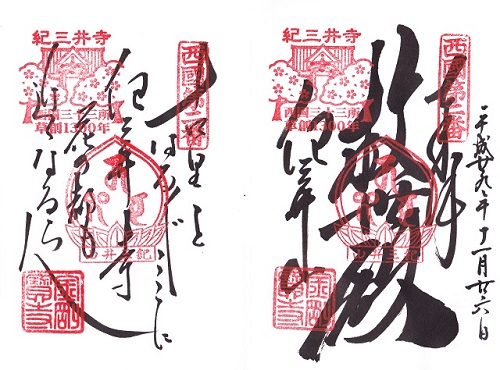 平成廿九年十一月廿六日
奉拝
救世殿
紀三井寺
西國第二番
紀三井寺
西国三十三所
草創1300年
金剛寶寺
ふる里を
はるばるここに
紀三井寺
花の都も
近くなるらん
西國第二番
紀三井寺
西国三十三所
草創1300年
金剛寶寺